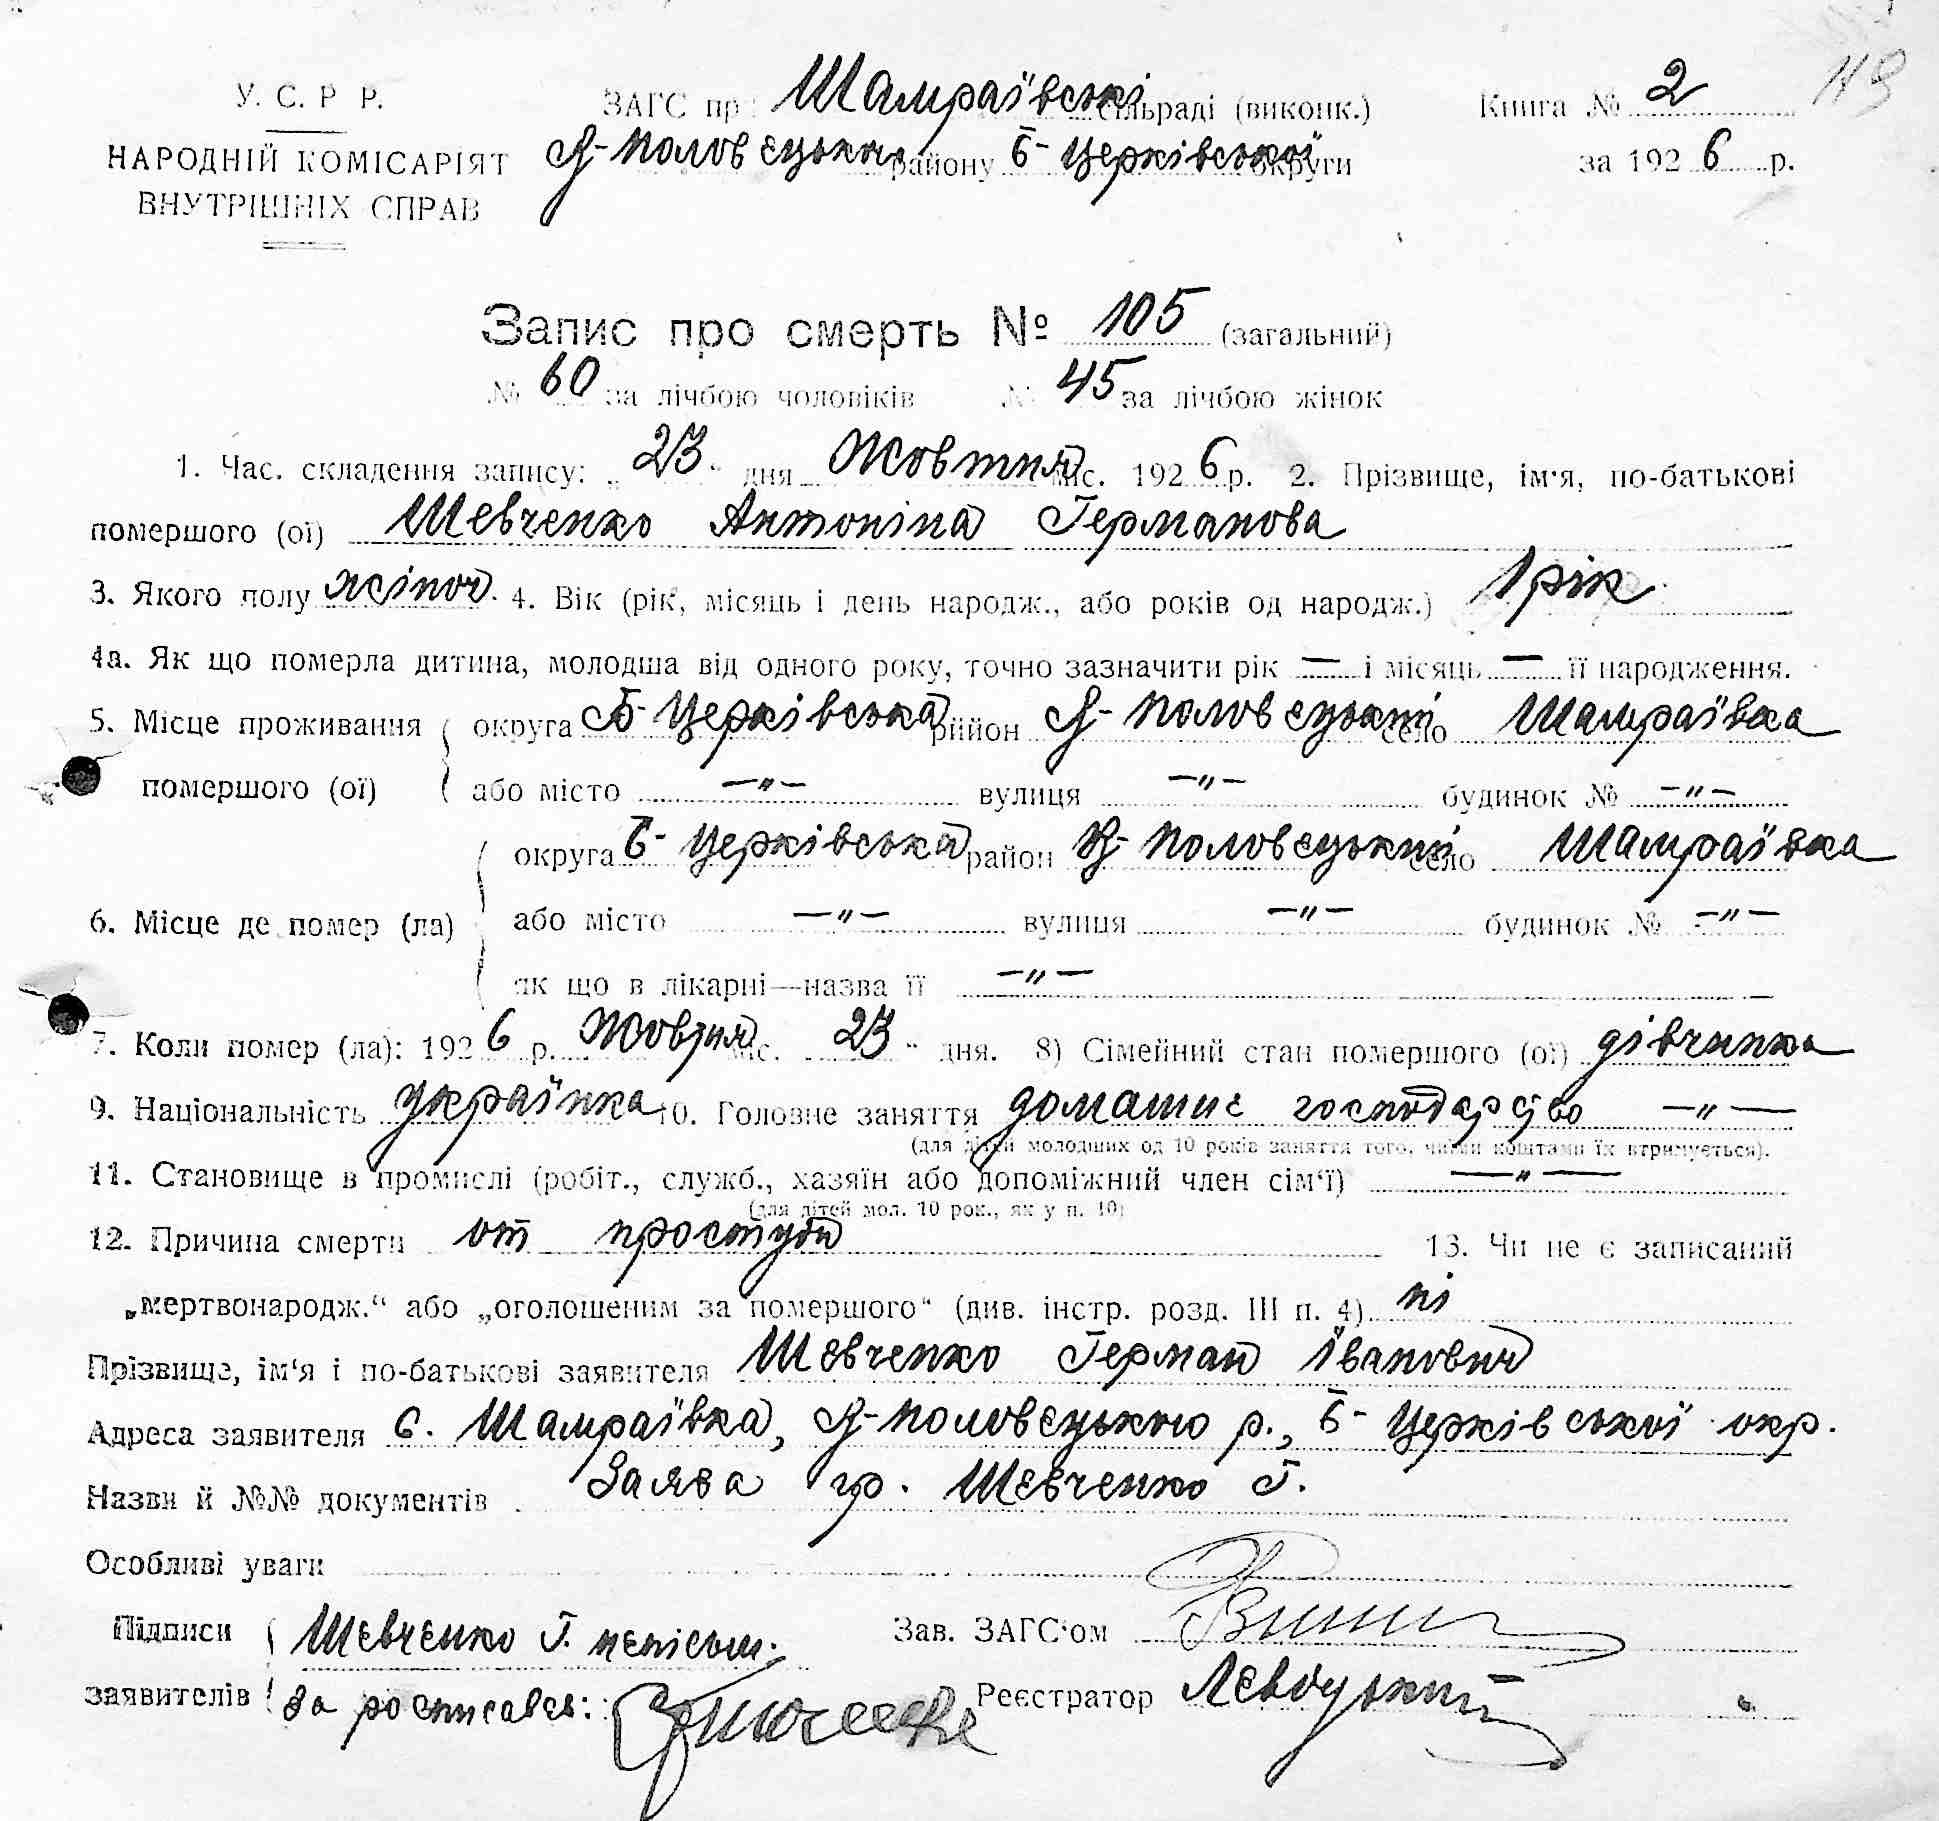 119
У. С. Р Р. ЗАГС пр Шамраївські сільраді (виконк.) Книга № 2
НАРОДНІЙ КОМІСАРІЯТ Я-Половецького району Б-Церківської округи за 1926 р.
ВНУТРІШНІХ СПРАВ
Запис про смерть № 105 (загальний)
№ 60 за лічбою чоловіків № 45 за лічбою жінок
1. Час. складення запису: „23" дня Жовтня міс. 1926 р. 2. Прізвище, ім'я, по-батькові
помершого (ої) Шевченко Антоніна Германова
3. Якого полу жіноч. 4. Вік (рік, місяць і день народж., або років од народж.) 1 рік
4а. Як що померла дитина, молодша від одного року, точно зазначити рік — і місяць — її народження.
5. Місце проживання округа Б-Церківська район Я-Половецький село Шамраївка
помершого (ої) або місто —"— вулиця —"— будинок № —"—
округа Б-Церківська район Я-Половецький село Шамраївка
6. Місце де помер (ла) або місто —"— вулиця —"— будинок № —"—
як що в лікарні—назва її —"—
7. Коли помер (ла): 1926 р. Жовтня міс. 23 " дня. 8) Сімейний стан помершого (ої) дівчинка
9. Національність українка 10. Головне заняття домашнє господарство —"—
(для дітей молодших од 10 років заняття того, чиїми коштами їх втримується).
11. Становище в промислі (робіт., служб., хазяїн або допоміжний член сім'ї) —"—
(для дітей мол. 10 рок., як у п. 10)
12. Причина смерти от простуди 13. Чи не є записаний
„мертвонародж.“ або „оголошеним за помершого“ (див. інстр. розд. III п. 4) ні
Прізвище, ім'я і по-батькові заявителя Шевченко Герман Іванович
Адреса заявителя с. Шамраївка, Я-Половецького р., Б-Церківської окр.
Назви й №№ документів Заява гр. Шевченко Г.
Особливі уваги
Підписи Шевченко Г. неписьм. Зав. ЗАГС'ом
заявителів за росписався: Реєстратор Левицький